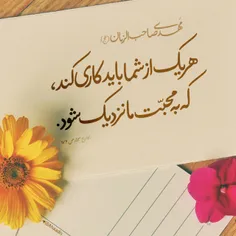 مهدی صاحب الزمان (عج)
هر یک از شما باید کاری کند،
که به محبّت ما نزدیک شود.